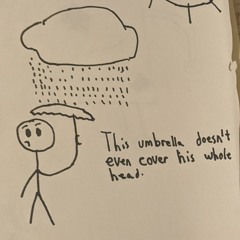 This umbrella doesn't
even cover his whole
head.